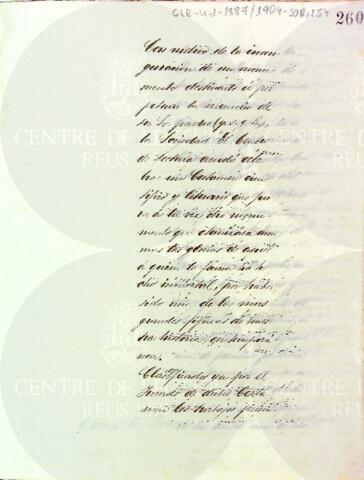 CLR-U-1-1887/1904-508,154
260
Con motivo de la inau
guracion de un monu
mento destinado á per
petuar la memoria de
su Sr. padre (q. s. g. h.)
la Sociedad El Centro
de Lectura acordó cele
brar un Certamen cien
tífico y literario que fue
ra á la vez otro monu
mento que
las glorias de aquel
á quien la fama ha he
cho inmortal, por haber
sido una de las mas
grandes figuras de nues
tra historia contemporá
nea.
Clasificados ya por el
Jurado de dicho Certa
men los trabajos
CENTRE DE
REUS
CENTRE DE
REUS